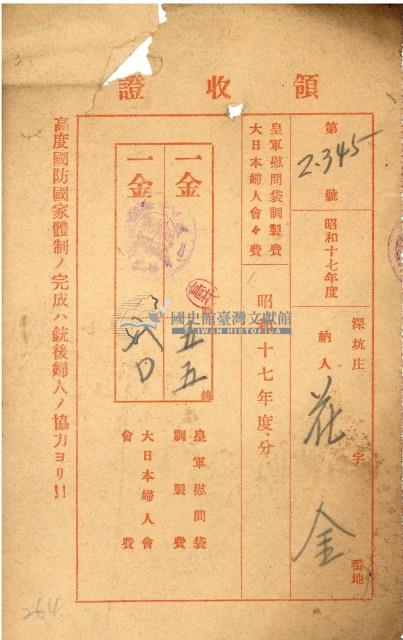 領收證
深坑庄 字 番地
納人 花 金
第 2.345 號 昭和十七年度
皇軍慰問袋調製費
大日本婦人會々費
昭和十七年度分
一金 五五 錢
皇軍慰問袋調製費
一金
大日本婦人會會費
高度國防國家體制ノ完成ハ銃後婦人ノ協力ヨリ!!
264
國史館臺灣文獻館
TAIWAN HISTORICA